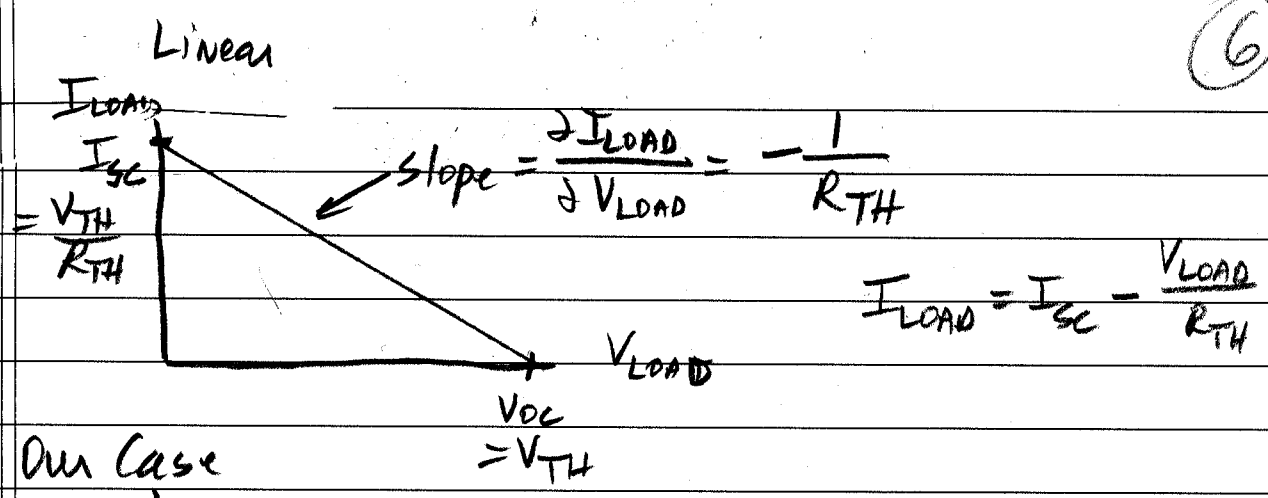 6
Linear
I_LOAD
I_SC
= V_TH / R_TH
slope = ∂I_LOAD / ∂V_LOAD = - 1 / R_TH
I_LOAD = I_SC - V_LOAD / R_TH
V_LOAD
V_OC
= V_TH
Our Case